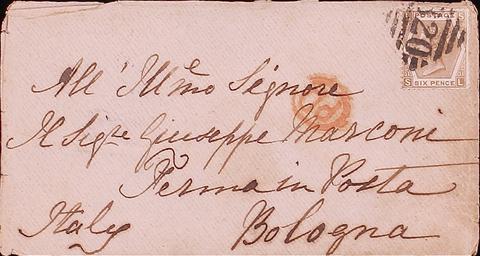 POSTAGE
S
20
S L
SIX PENCE
All' Illmo Signore
Il Sigre Giuseppe Marconi
Ferma in Posta
Italy Bologna